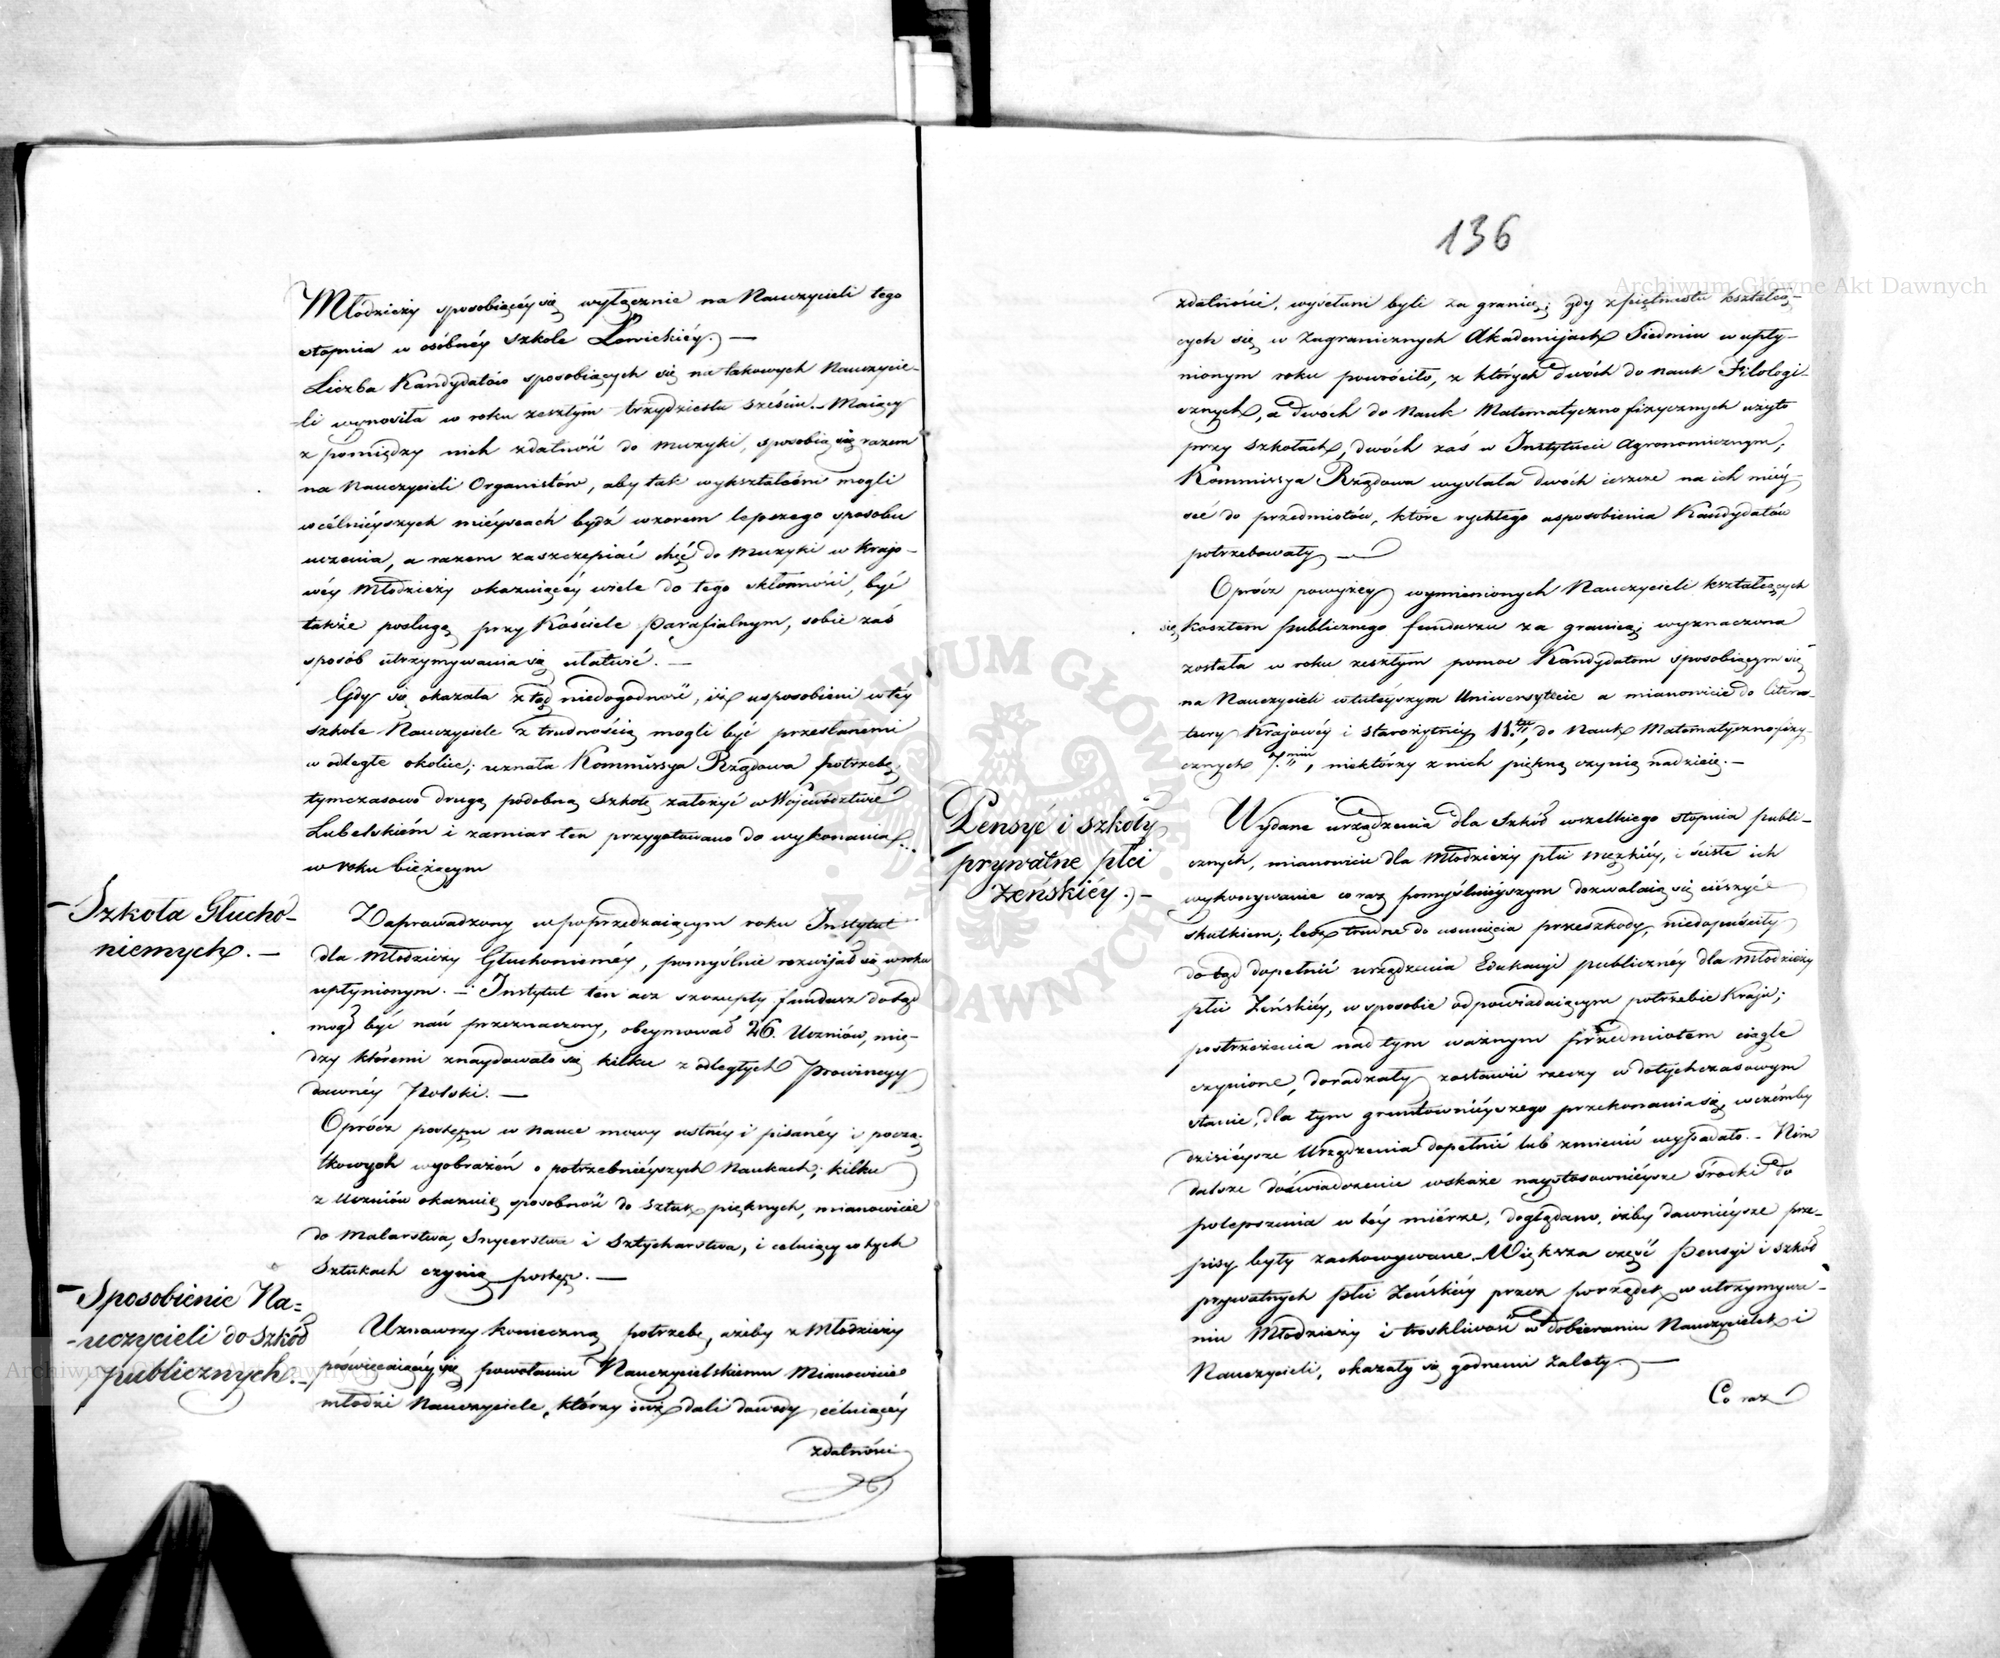 Młodzieży sposobiącéy się wyłącznie na Nauczycieli tego
stopnia w osóbnéy Szkole Łowickiéy. —
Liczba Kandydatów sposobiących się na takowych Nauczycie-
li wynosiła w roku zeszłym trzydziestu sześciu. — Maiący
z pomiędzy nich zdatność do muzyki, sposobią się razem
na Nauczycieli Organistów, aby tak wykształceni mogli
w célniéyszych miéyscach bydź wzorem lepszego sposobu
uczenia, a razem zaszczepiać chęć do Muzyki w Krajo-
wéy Młodzieży okazuiącéy wiele do tego skłonności, być
także posługą przy Kościele Parafialnym, sobie zaś
sposób utrzymywania się ułatwić. —
Gdy się okazała ztąd niedogodność, iż usposobieni w téy
szkole Nauczyciele z trudnością mogli być przesłanemi
w odległe okolice; uznała Kommissya Rządowa potrzebę
tymczasowo drugą podobną Szkołę założyć w Województwie
Lubelskiém i zamiar ten przygotowano do wykonania
w roku bieżącym
Szkoła Głucho-
niemych. —
Zaprowadzony w poprzedzaiącym roku Instytut
dla Młodzieży Głuchonieméy, pomyślnie rozwijał się w roku
upłynionym. — Instytut ten acz szczupły fundusz dotąd
mógł być nań przeznaczony, obeymował 26. Uczniów, mię-
dzy któremi znaydowało się kilku z odległych Prowincyy
dawnéy Polski. —
Oprócz postępu w nauce mowy ustnéy i pisanéy i począ-
tkowych wyobrażeń o potrzebniéyszych Naukach; kilku
z Uczniów okazuię sposobność do Sztuk pięknych, mianowicie
do Malarstwa, Snycerstwa i Sztycharstwa, i celuiący w tych
Sztukach czynią postęp. —
Sposobienie Na=
-uczycieli do Szkół
publicznych. —
Uznawszy konieczną potrzebę, ażeby z Młodzieży
poświęcaiącéy się powołaniu Nauczycielskiemu Mianowicie
młodzi Nauczyciele, którzy iuż dali dowody celuiącéy
zdatności
136
zdatności, wysełani byli za granicę; gdy z piętnastu kształcą-
cych się w Zagranicznych Akademijach Siedmiu w upły-
nionym roku powróciło, z których dwóch do nauk Filologi-
cznych, a dwóch do Nauk Matematyczno fizycznych użyto
przy Szkołach, dwóch zaś w Instytucie Agronomicznym;
Kommissya Rządowa wysłała dwóch ieszcze na ich miéy-
sce do przedmiotów, które rychłego usposobienia Kandydatów
potrzebowały —
Oprócz powyżéy wymienionych Nauczycieli kształcących
się Kosztem publicznego funduszu za granicą; wyznaczona
została w roku zeszłym pomoc Kandydatom sposobiącym się
na Nauczycieli w tutéyszym Uniwersytecie a mianowicie do litera-
tury Krajowéy i Starożytnéy 11.tu, do Nauk Matematyczno fizy-
cznych 7.miu, niektórzy z nich piękną czynią nadzieię. —
Pensye i szkoły
prywatne płci
Żeńskiéy. —
Wydane urządzenia dla Szkół wszelkiego stopnia publi-
cznych, mianowicie dla Młodzieży płci męzkiéy, i ścisłe ich
wykonywanie coraz pomyślniéyszym dozwalaią się cieszyć
skutkiem; lecz trudne do usunięcia przeszkody, niedopuściły
dotąd dopełnić urządzenia Edukacyi publicznéy dla Młodzieży
płci Żeńskiéy, w sposobie odpowiadaiącym potrzebie Kraju;
postrzeżenia nad tym ważnym przedmiotem ciągle
czynione, doradzały zostawić rzeczy w dotychczasowym
stanie, dla tym gruntowniéyszego przekonania się, w czémby
dzisiéysze Urządzenia dopełnić lub zmienić wypadało. — Nim
dalsze doświadczenie wskaże naystosowniéysze środki do
polepszenia w téy miérze, doglądano, iżby dawniéysze prze-
pisy były zachowywane. Większa część Pensyi i szkół
prywatnych płci Żeńskiéy przez porządek w utrzymywa-
niu Młodzieży i troskliwość w dobieraniu Nauczycielek i
Nauczycieli, okazały się godnemi zalety. —
Co raz
Archiwum Główne Akt Dawnych